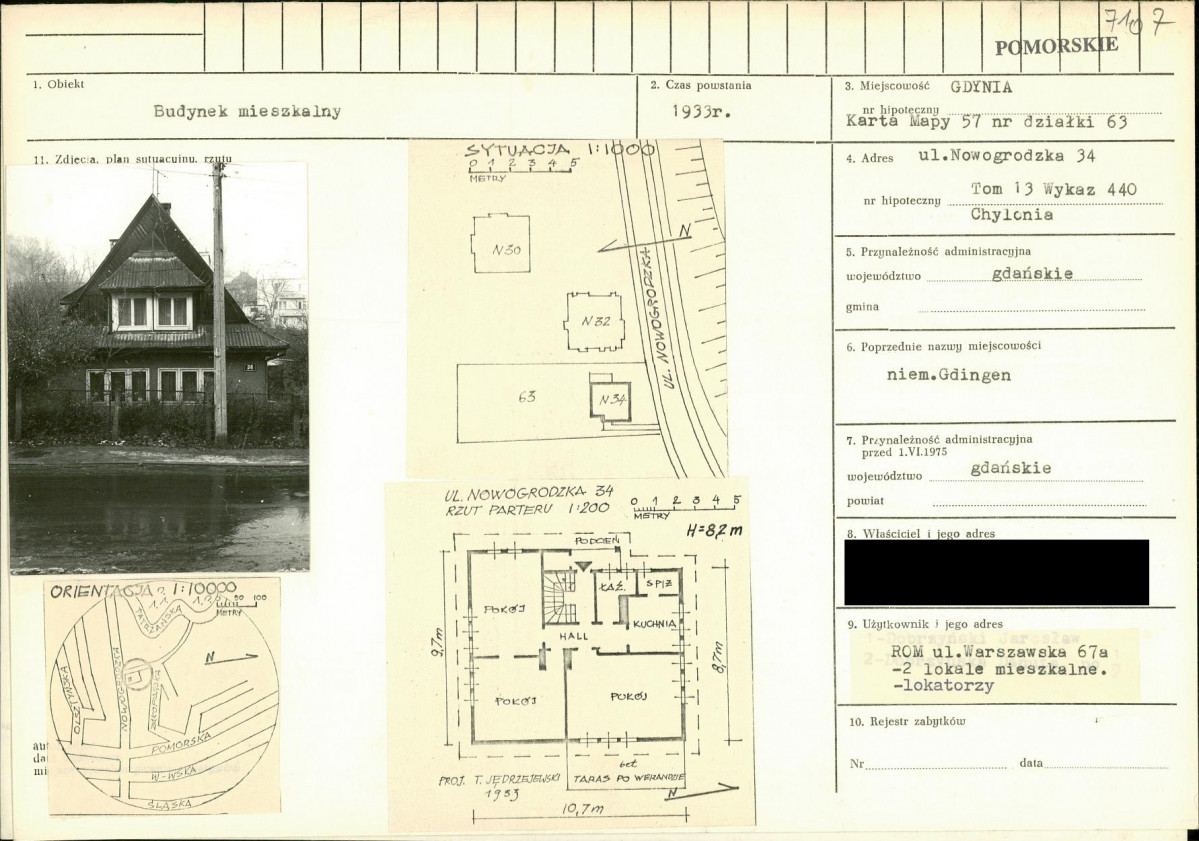 7107
POMORSKIE
1. Obiekt
Budynek mieszkalny
2. Czas powstania
1933r.
3. Miejscowość GDYNIA
nr hipoteczny
Karta Mapy 57 nr działki 63
4. Adres ul.Nowogrodzka 34
nr hipoteczny Tom 13 Wykaz 440
Chylonia
5. Przynależność administracyjna
województwo gdańskie
gmina
6. Poprzednie nazwy miejscowości
niem.Gdingen
7. Przynależność administracyjna
przed 1.VI.1975
województwo gdańskie
powiat
8. Właściciel i jego adres
9. Użytkownik i jego adres
ROM ul.Warszawska 67a
-2 lokale mieszkalne.
-lokatorzy
10. Rejestr zabytków
Nr data
11. Zdjęcia, plan sytuacyjny, rzuty
SYTUACJA 1:1000
0 1 2 3 4 5
METRY
N30
N
N32
UL. NOWOGRODZKA
63
N34
UL. NOWOGRODZKA 34
RZUT PARTERU 1:200
0 1 2 3 4 5
METRY
H=8,2 m
PODCIEŃ
ŁAŹ.
SPIŻ
POKÓJ
KUCHNIA
HALL
9,7m
8,7m
POKÓJ
POKÓJ
bet
TARAS PO WERANDZIE
PROJ. T. JĘDRZEJEWSKI
1933
N
10,7m
ORIENTACJA 1:10000
50 100
METRY
TATRZAŃSKA
N
OLSZTYŃSKA
NOWOGRODZKA
POMORSKA
W-WSKA
ŚLĄSKA